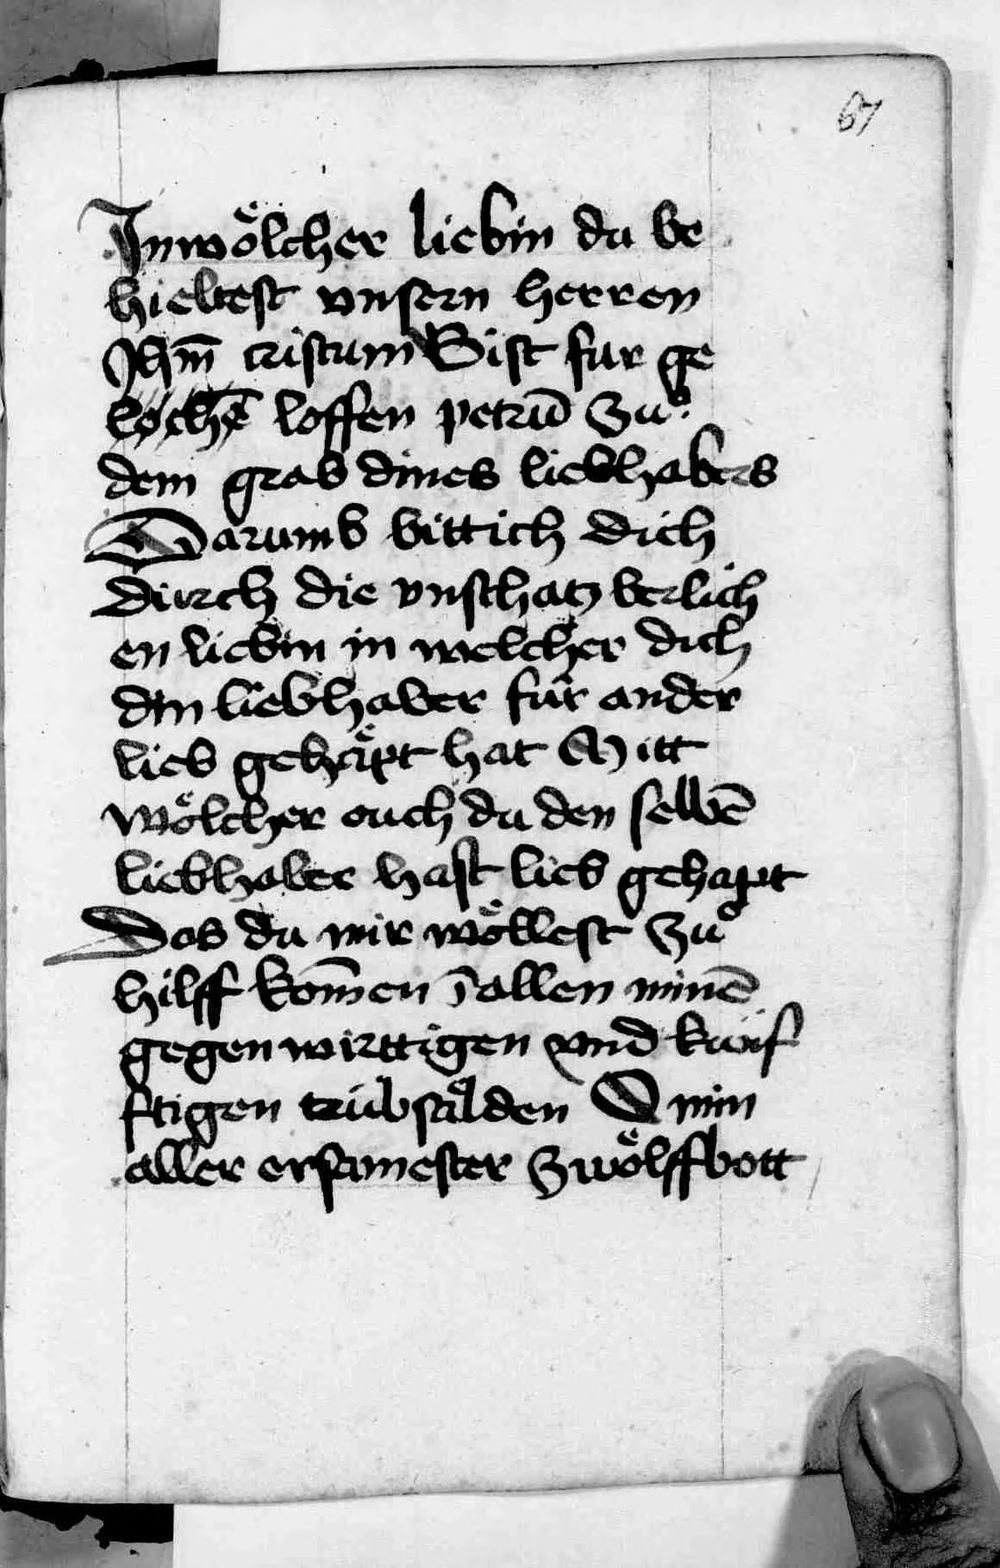 67
Inwoͤlcher liebin du be
hieltest vnsern herren
Jhm̄ cristum Bist fur ge
lochē loffen petrū Zuͦ
dem grab dines liebhabers
Darumb bittich dich
durch die vnschatzberlich
en liebin in welcher dich
din liebhaber fur ander
lieb gehaͤpt hat Mitt
woͤlcher ouch du den selbē
liebhaber hast lieb gehapt
Das du mir woͤllest Zuͦ
hilff kom̄en ī allen minē
gegenwirttigen vnd kunf
ftigen trübsaͤlden O min
aller ersamester Zwoͤlffbott